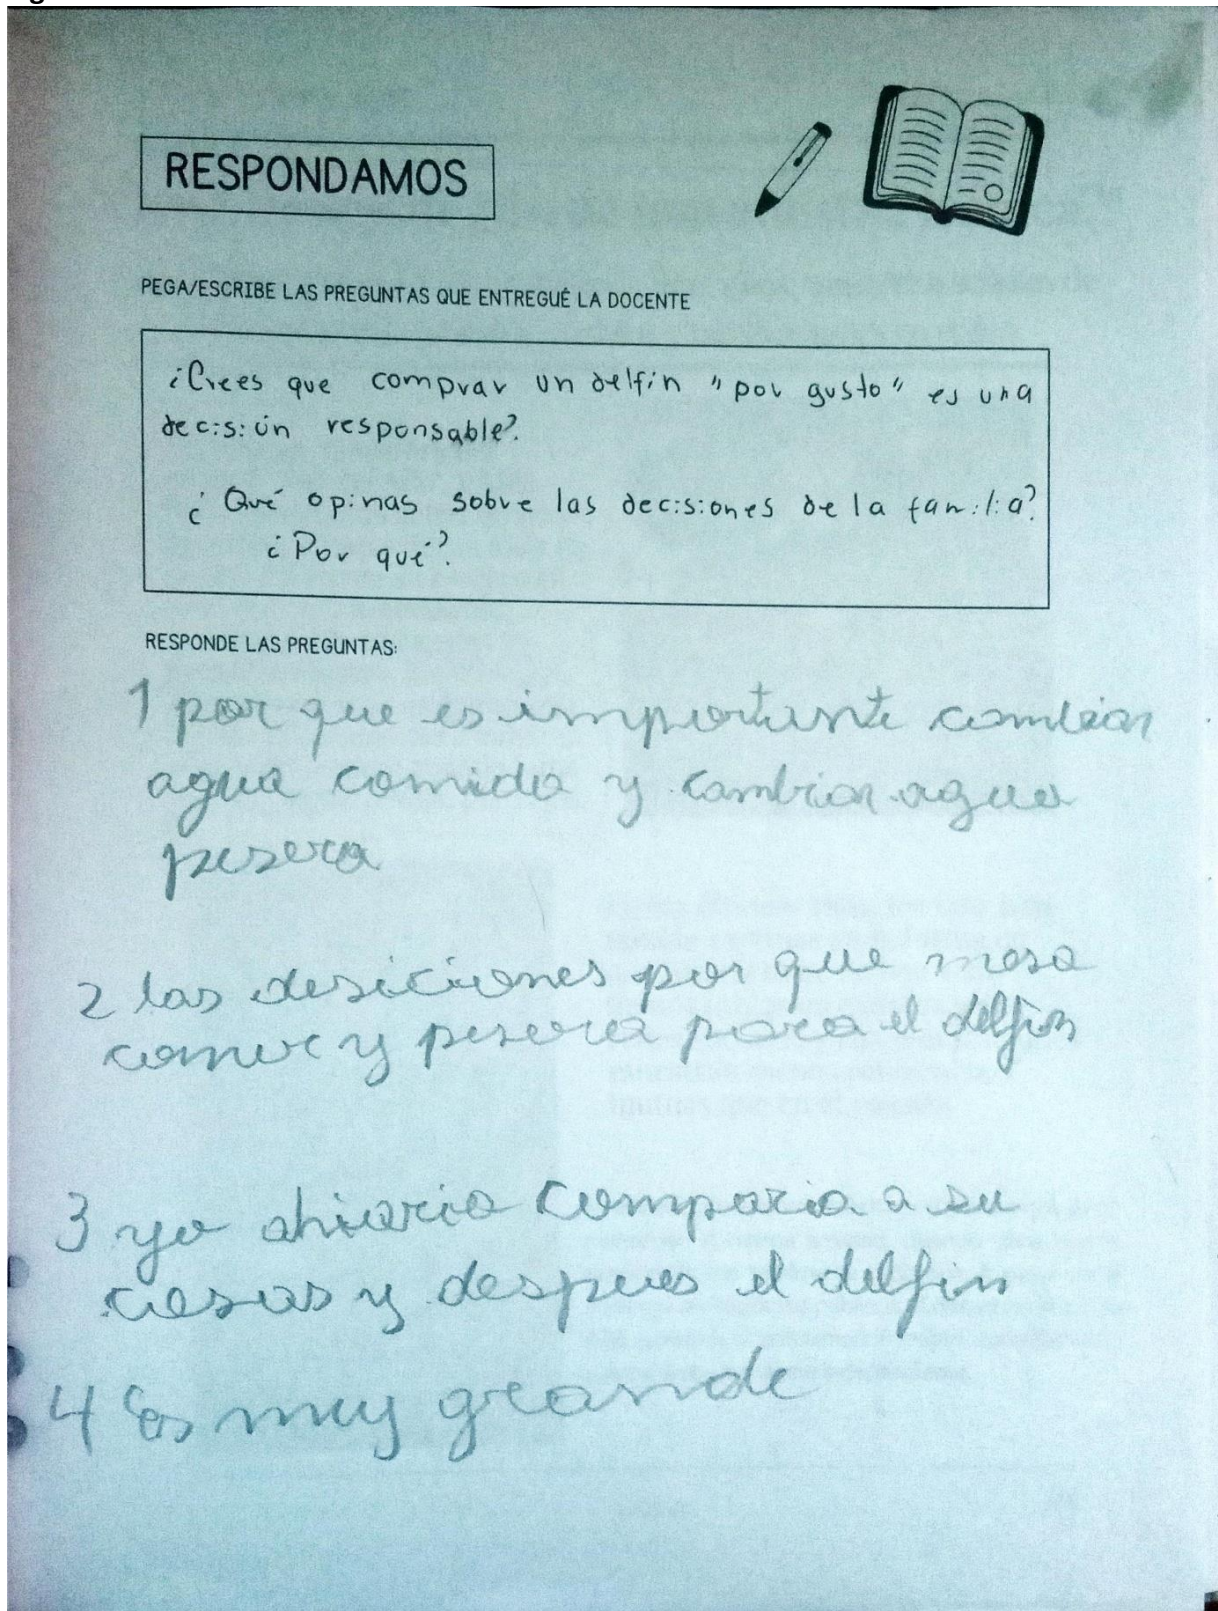 RESPONDAMOS
PEGA/ESCRIBE LAS PREGUNTAS QUE ENTREGUÉ LA DOCENTE
¿Crees que comprar un delfín "por gusto" es una
decisión responsable?
¿Qué opinas sobre las decisiones de la familia?
¿Por qué?
RESPONDE LAS PREGUNTAS:
1 por que es importante cambiar
agua comida y cambiar agua
pesera
2 las desiciones por que mesa
comer y pesera para el delfin
3 yo ahiaria comparia a su
cosas y despues el delfin
4 Es muy grande